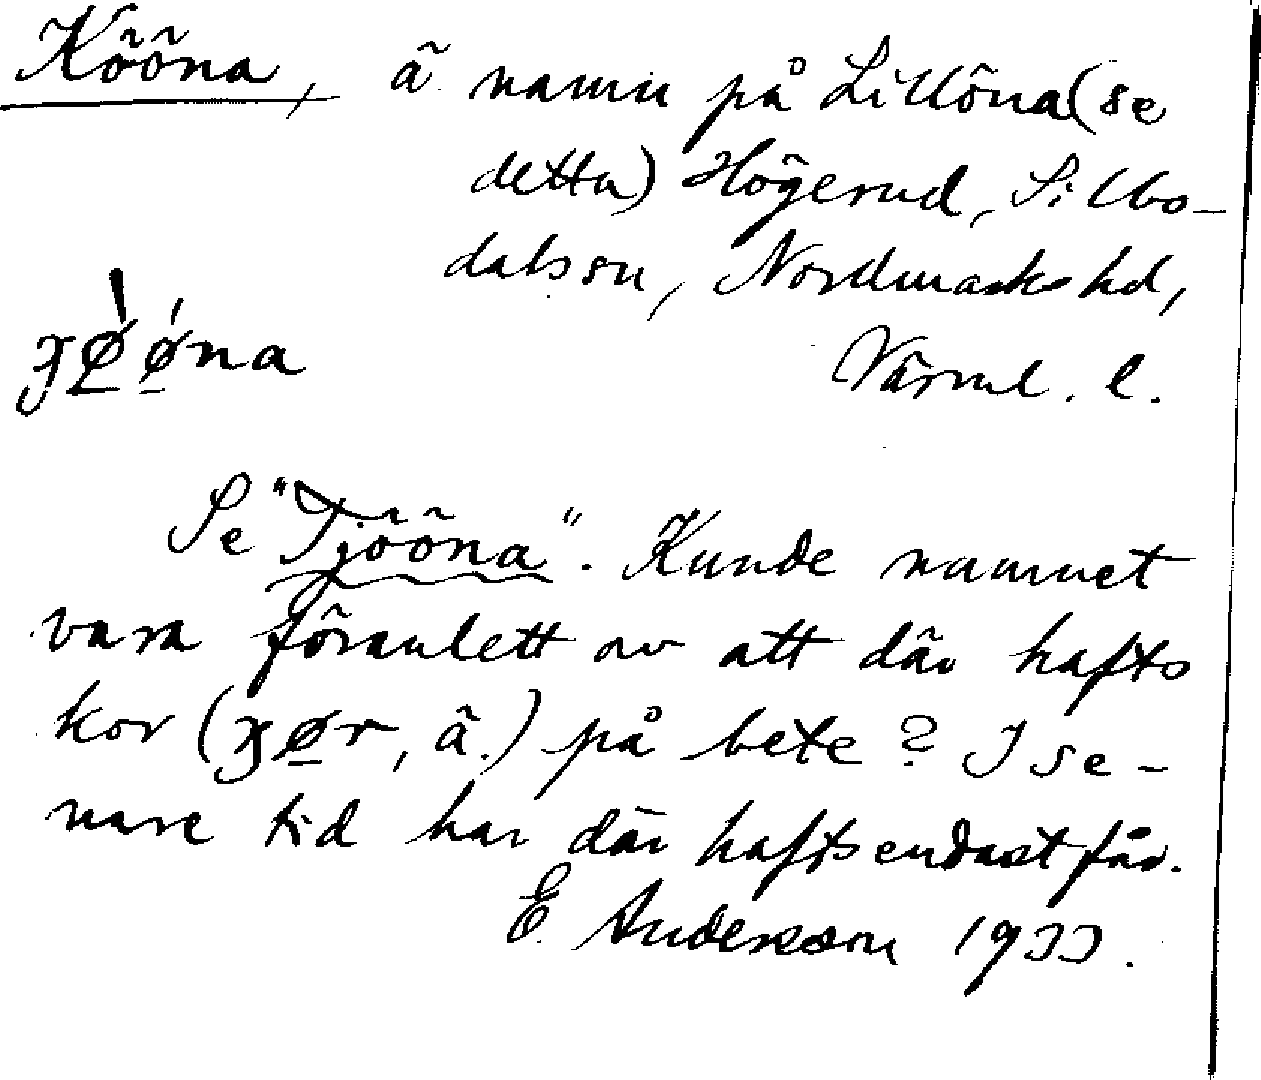 Kööna, ä namn på Lillöna (se
detta) Högerud, Sillbo-
dals sn, Nordmarks hd,
Värml. l.
Se "Tjööna". Kunde namnet
vara föranlett av att där hafts
kor (, ä.) på bete? I se-
nare tid har där hafts endast får.
E. Anderson 1933.